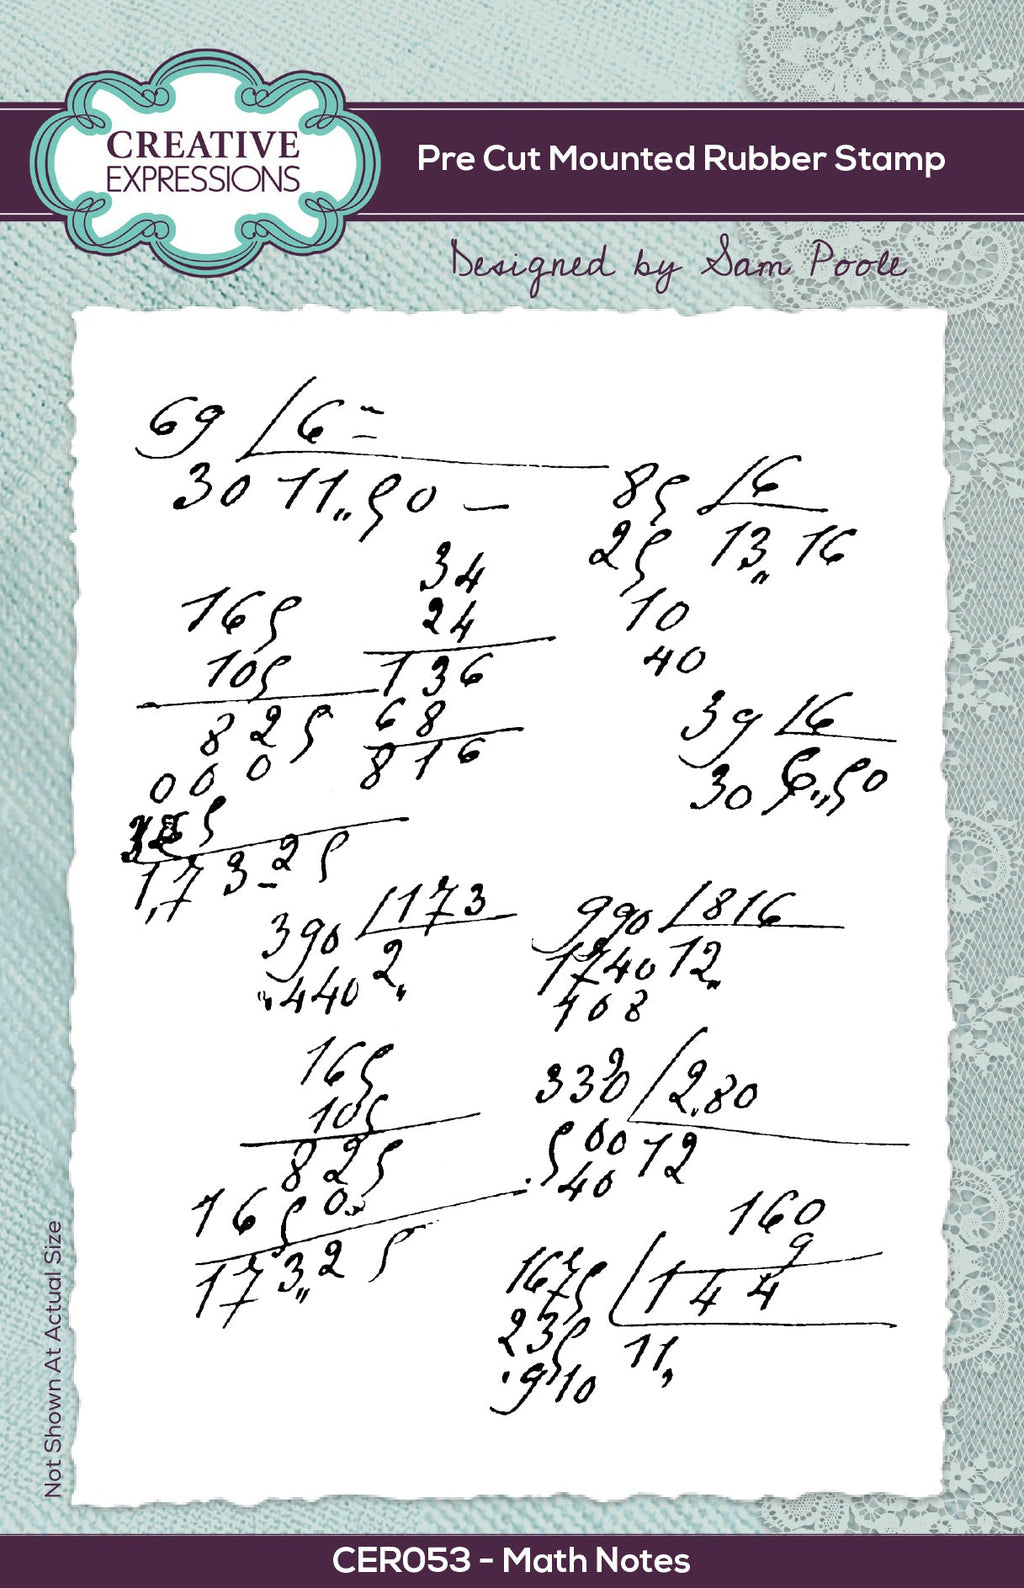 CREATIVE
EXPRESSIONS
Pre Cut Mounted Rubber Stamp
Designed by Sam Poole
69 6 =
30 11,,50 —
85 6
25 13,, 16
10
40
34
24
136
68
816
165
105
825
000
1,73-25
39 6
30 6,,50
390 173
440 2,,
990 816
1740 12,,
108
165
105
825
165 0
173,,25
330 2.80
500 12
40
160
9
1675 144
235 11,,
910
Not Shown At Actual Size
CER053 - Math Notes